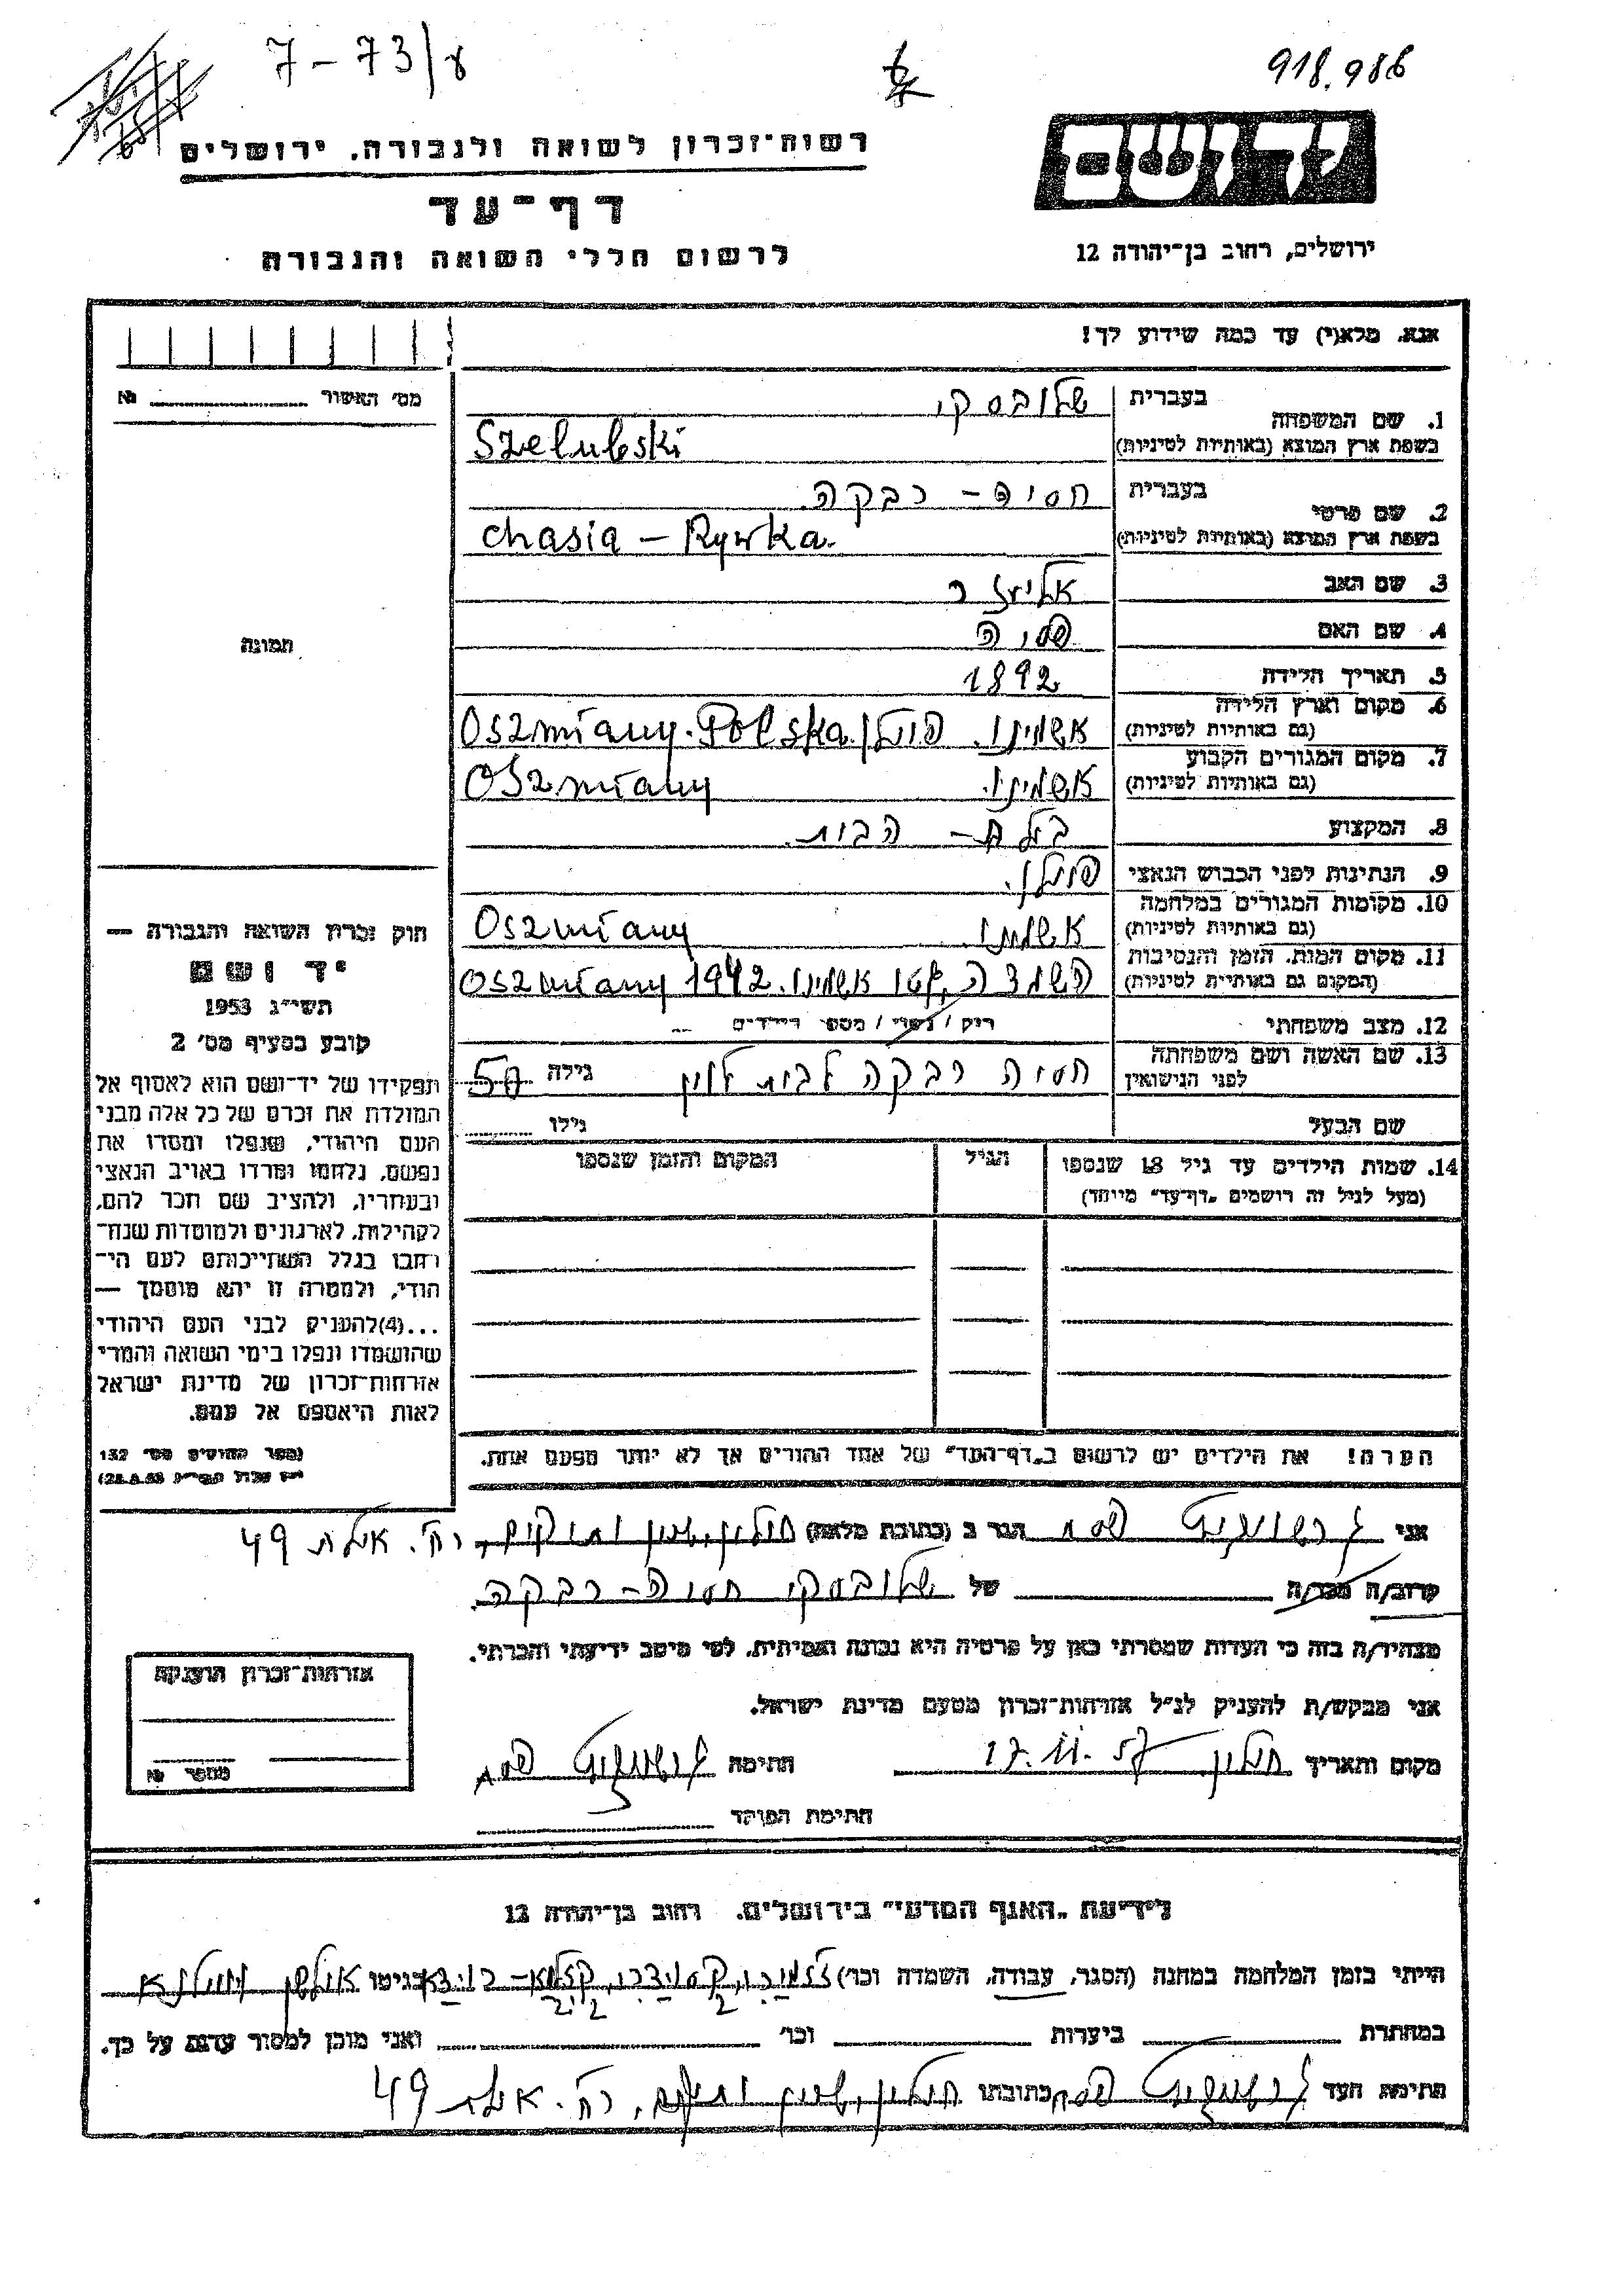 7-73/ע
918.986
יד ושם
רשות־זכרון לשואה ולגבורה. ירושלים
דף־עד
ירושלים, רחוב בן־יהודה 12
לרשום חללי השואה והגבורה
אנא. מלא(י) עד כמה שידוע לך!
מס׳ האשור № 
1. שם המשפחה בעברית שלובסקי
בשפת ארץ המוצא (באותיות לטיניות) Szelubski
2. שם פרטי בעברית חסיה – רבקה.
בשפת ארץ המוצא (באותיות לטיניות) Chasia – Rywka.
3. שם האב אליעזר
4. שם האם
תמונה
5. תאריך הלידה 1892
6. מקום וארץ הלידה (גם באותיות לטיניות) פולין Oszmiany. Polska
7. מקום המגורים הקבוע (גם באותיות לטיניות) Oszmiany
8. המקצוע הבית.
9. הנתינות לפני הכבוש הנאצי פולין.
10. מקומות המגורים במלחמה (גם באותיות לטיניות) Oszmiany
11. מקום המות. הזמן והנסיבות (המקום גם באותיות לטיניות) Oszmiany 1942
12. מצב משפחתי רוק / נשוי / מספר הילדים
13. שם האשה ושם משפחתה לפני הנישואין חסיה רבקה לבית גילה 50
שם הבעל גילו
14. שמות הילדים עד גיל 18 שנספו הגיל המקום והזמן שנספו
(מעל לגיל זה רושמים „דף־עד״ מיוחד)
חוק זכרון השואה והגבורה —
יד ושם
תשי״ג 1953
קובע בסעיף מס׳ 2
תפקידו של יד־ושם הוא לאסוף אל
המולדת את זכרם של כל אלה מבני
העם היהודי, שנפלו ומסרו את
נפשם, נלחמו ומרדו באויב הנאצי
ובעוזריו, ולהציב שם וזכר להם,
לקהילות, לארגונים ולמוסדות שנח־
רבו בגלל השתייכותם לעם הי־
הודי, ולמטרה זו יהא מוסמך —
...(4)להעניק לבני העם היהודי
שהושמדו ונפלו בימי השואה והמרי
אזרחות־זכרון של מדינת ישראל
לאות היאספם אל עמם.
(ספר החוקים מס׳ 132
הערה! את הילדים יש לרשום ב„דף־העד״ של אחד ההורים אך לא יותר מפעם אחת.
אני הגר ב (כתובת מלאה) חולון, רח׳. אילת 49
קרוב/ה מכר/ה של שלובסקי חסיה – רבקה.
מצהיר/ה בזה כי העדות שמסרתי כאן על פרטיה היא נכונה ואמיתית, לפי מיטב ידיעתי והכרתי.
אני מבקש/ת להעניק לנ״ל אזרחות־זכרון מטעם מדינת ישראל.
אזרחות־זכרון הוענקה
מספר №
מקום ותאריך חולון 17. חתימה
חתימת הפוקד
לידיעת „האגף המדעי״ בירושלים. רחוב בן־יהודה 12
הייתי בזמן המלחמה במחנה (הסגר, עבודה, השמדה וכר׳) בגיטו
במחתרת ביערות וכר׳ ואני מוכן למסור עדות על כך.
חתימת העד כתובתו חולון, רח׳. אילת 49